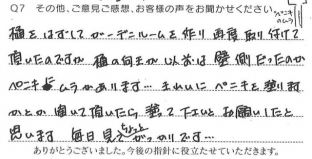 Q7 その他、ご意見ご感想、お客様の声をお聞かせください。
ペンキのムラ
樋をはずしてガーデンルームを作り再度取り付けて
頂いたのですが樋の向きが以前は壁側だったのか
ペンキムラがあります…きれいにペンキを塗ります
かとか聞いて頂いたら、塗って下さいとお願いしたと
思います 毎日見てちょっとがっかりです…
ありがとうございました。今後の指針に役立たせていただきます。